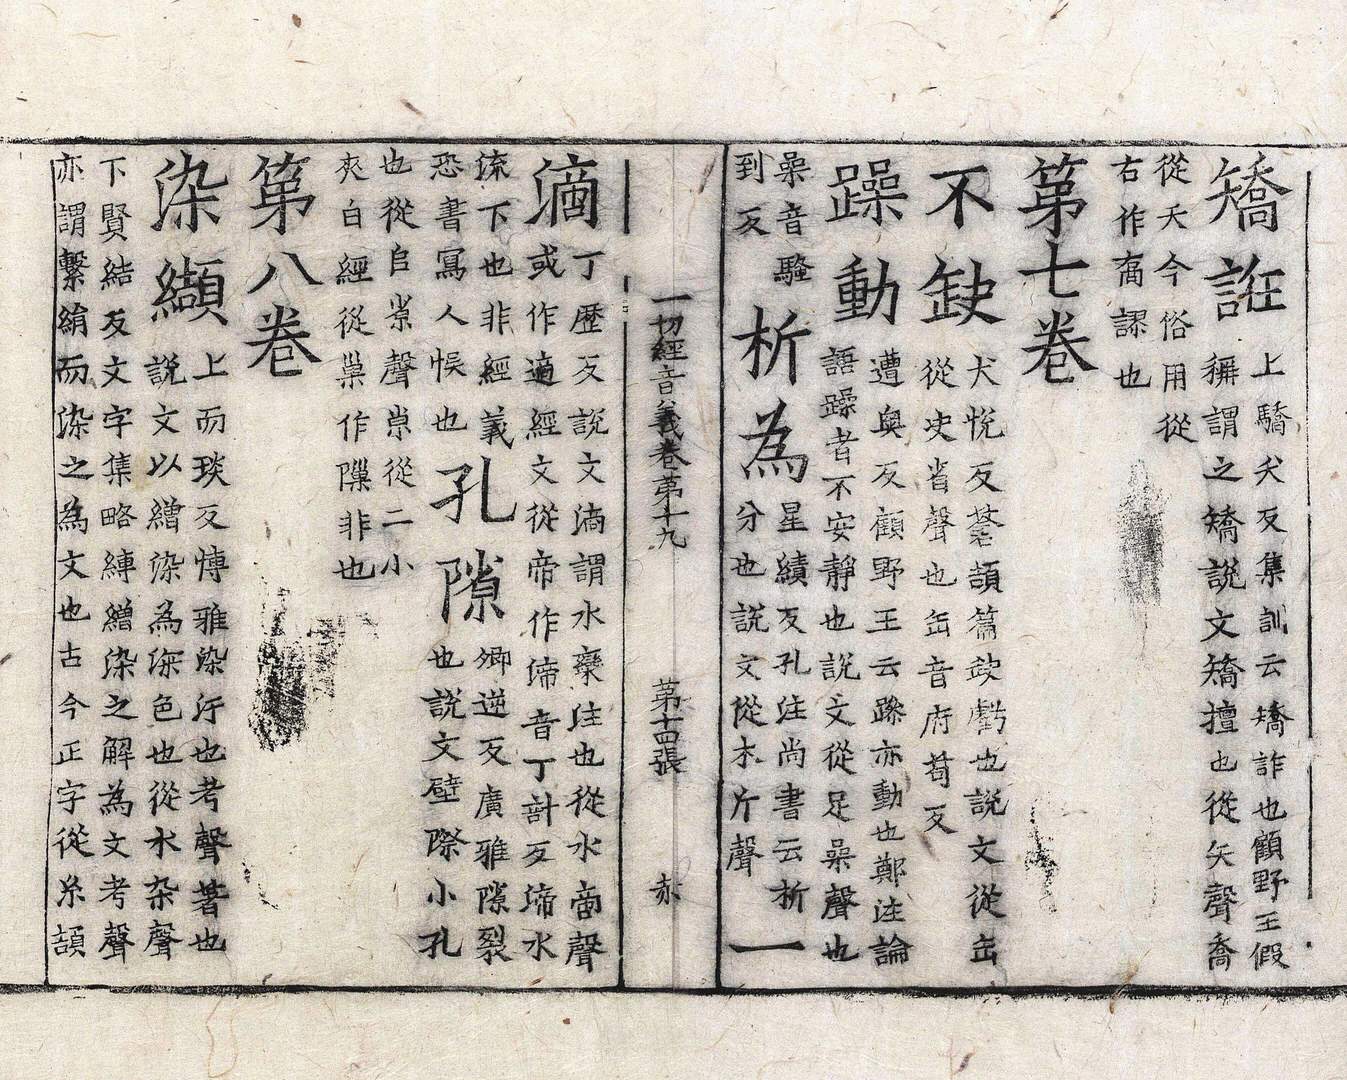 矯誑
上驕夭反集訓云矯詐也顧野王假
稱謂之矯說文矯擅也從矢聲喬
從夭今俗用從
右作喬謬也
第七卷
不缺
犬悅反蒼頡篇缺虧也說文從缶
從夬省聲也缶音府苟反
躁動
遭奧反顧野王云躁亦動也鄭注論
語躁者不安靜也說文從足喿聲也
喿音騷
到反
析為
星績反孔注尚書云析
分也說文從木斤聲
一
一切經音義卷第十九
第十四張
赤
滴
丁歷反說文滴謂水欒注也從水啇聲
或作適經文從帝作渧音丁計反渧水
流下也非經義
恐書寫人悞也
孔隙
卿逆反廣雅隙裂
也說文壁際小孔
也從𨸏𡭴聲𡭴從二小
夾白經從巢作隟非也
第八卷
染纈
上而琰反博雅染汙也考聲著也
說文以繒染為深色也從木杂聲
下賢結反文字集略縛繒染之解為文考聲
亦謂繫絹而染之為文也古今正字從糸頡